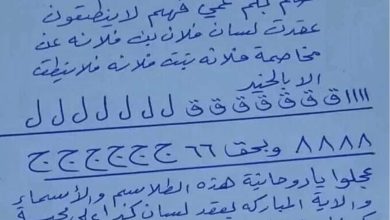 صم بكم عمي فهم لا ينطقون
عقدت لسان فلان بن فلانه عن
مخاصمة فلانه بنت فلانه فلا ينطق
الا بالخير
١١١١ ق ق ق ق ق ق ق ل ل ل ل ل ل ل
٨٨٨٨ وبحق ٦٦ ج ج ج ج ج ج
عجلوا يا روحانية هذه الطلاسم والأسماء
والاية المباركه بعقد لسان كذا على محبة